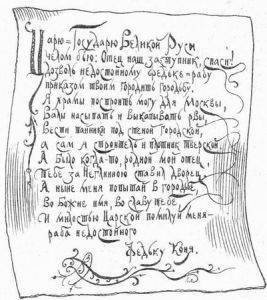 Царю-Государю Великой Руси
Челом бью: Отец наш заступник, спаси!
Дозволь недостойному Федьке-рабу
Приказом твоим городить городьбу.
Я храмы построить могу для Москвы,
Валы насыпать и выкапывать рвы,
Вести тайники под стеной городской,
А сам я строитель и плотник тверской.
А было когда-то, родной мой отец,
Тебе за Неглинною ставил дворец,
А ныне меня попытай в городьбе
Во Божие имя, во славу тебе
И милостью Царской помилуй меня-
раба недостойного
Федьку Коня.